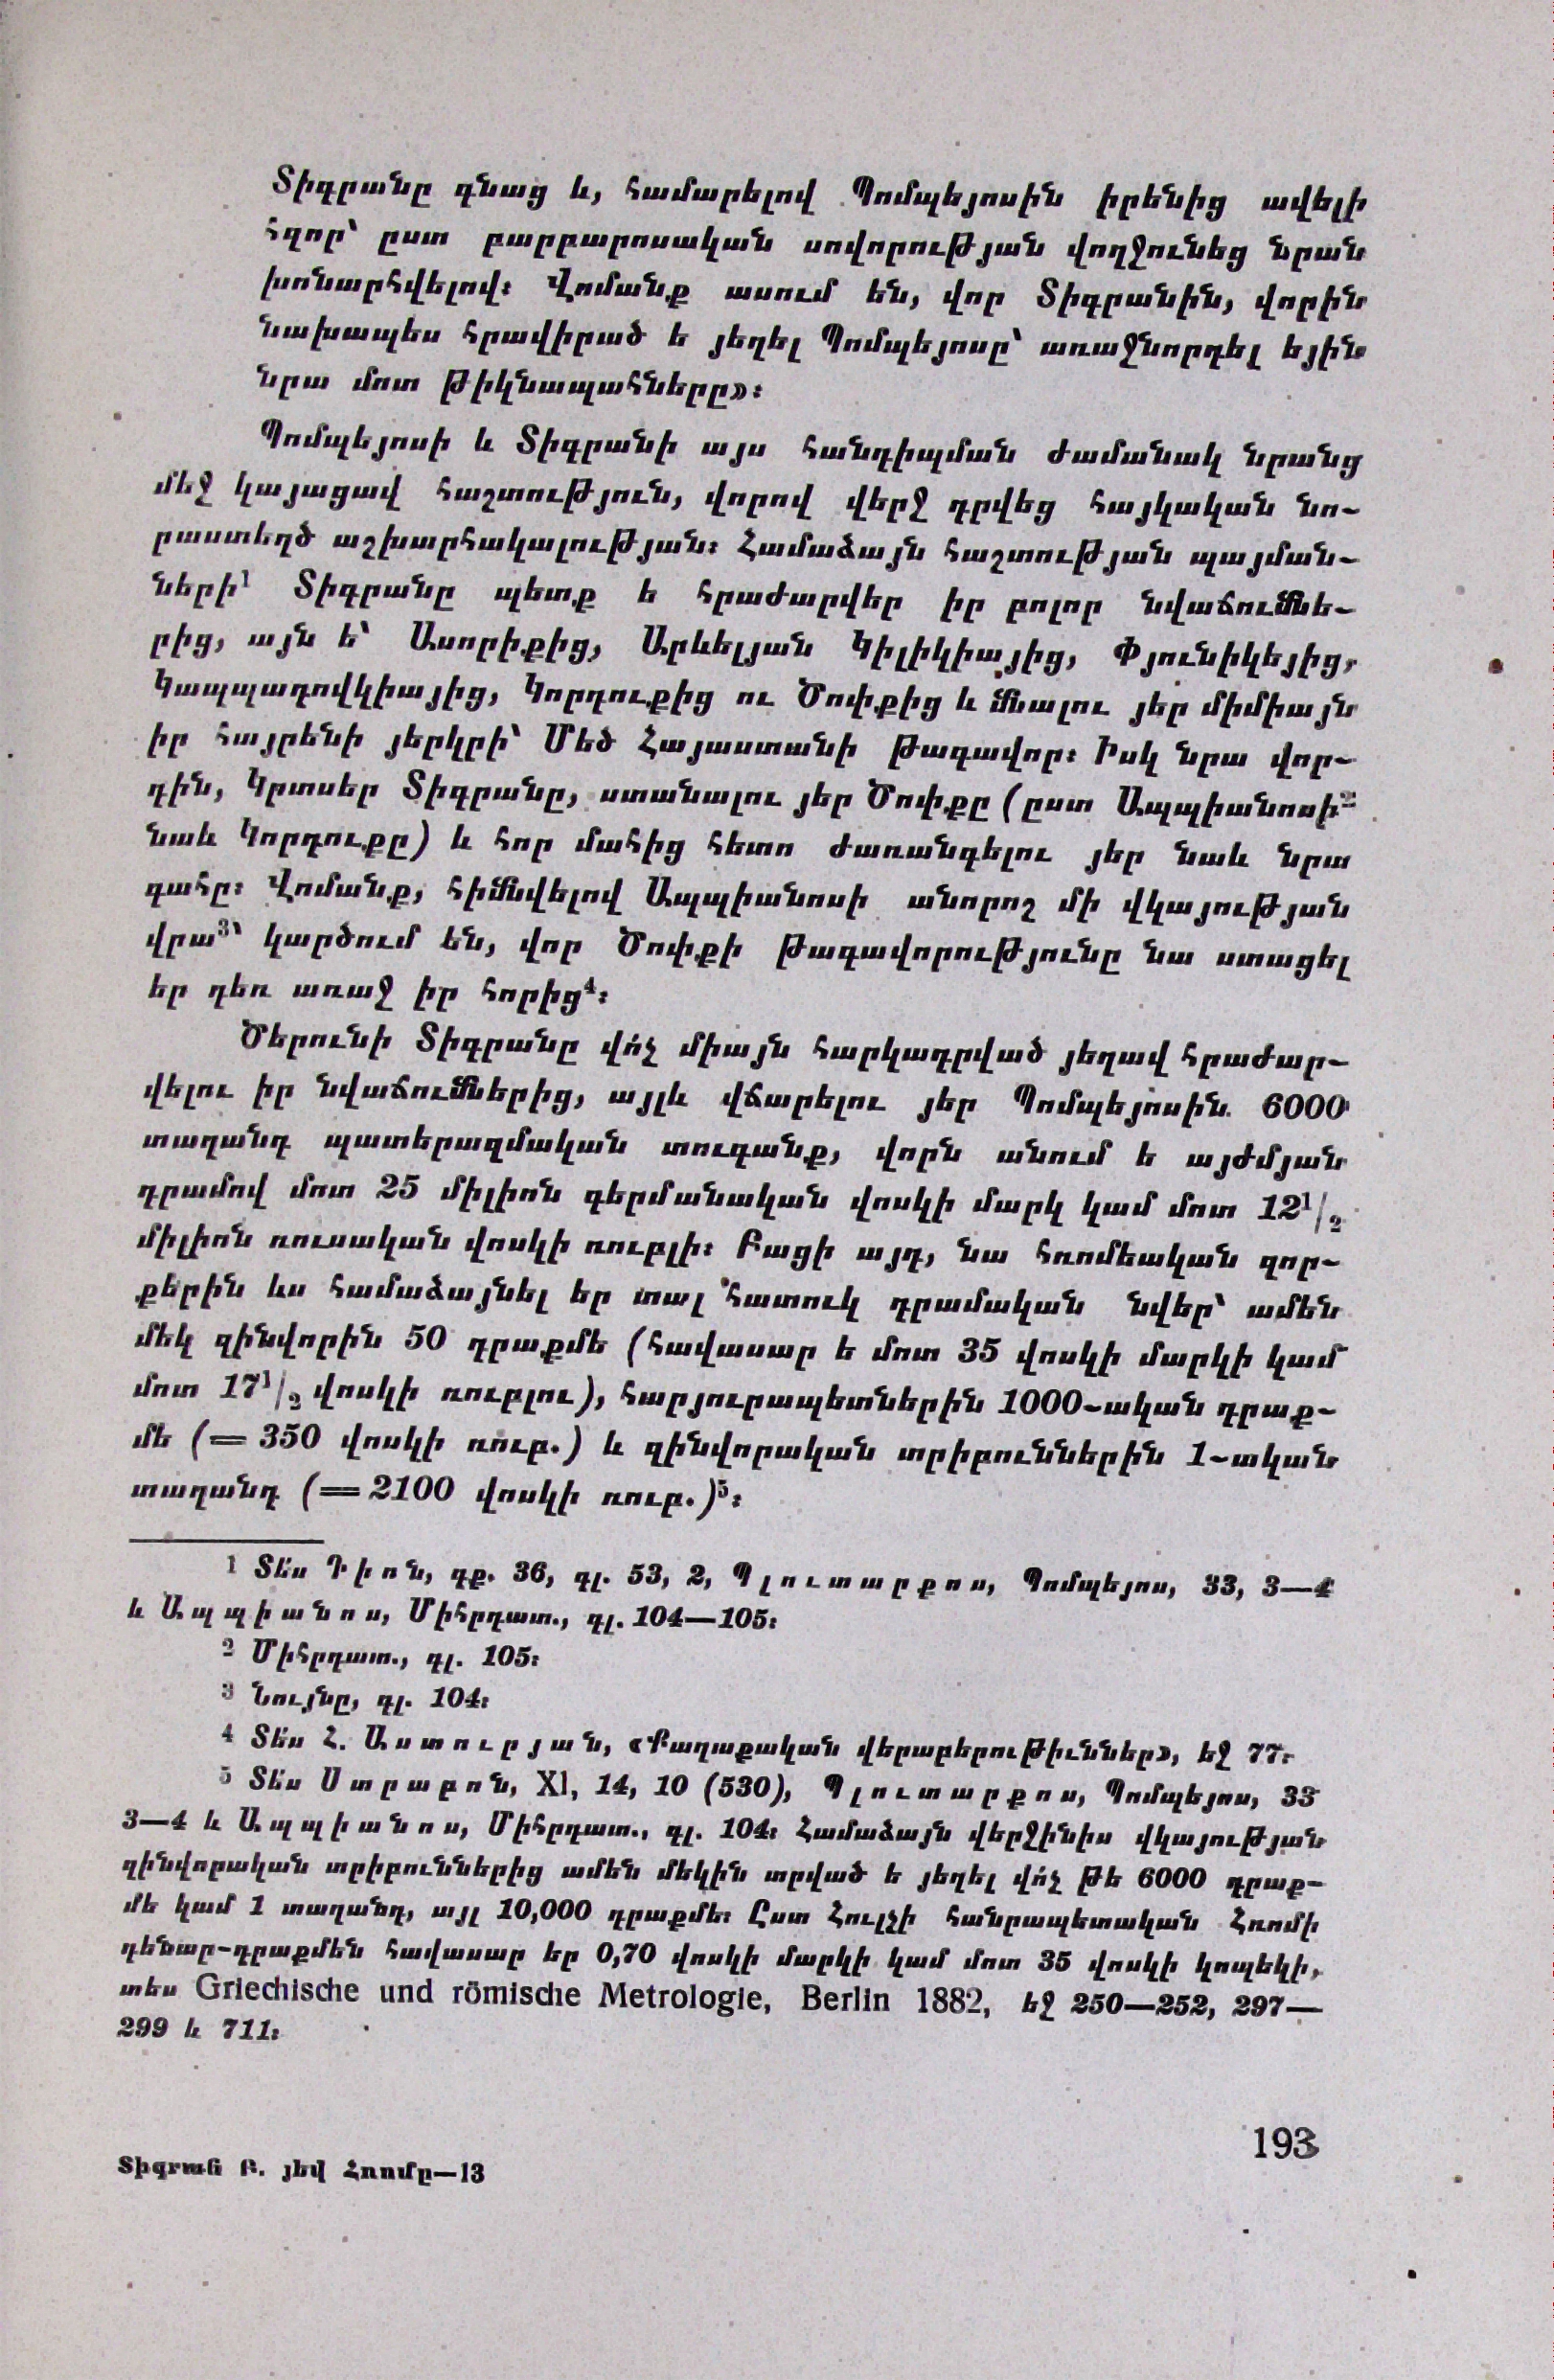 Տիգրանը գնաց և, համարելով Պոմպեյոսին իրենից ավելի
հզոր՝ ըստ բարբարոսական սովորության վողջունեց նրան
խոնարհվելով։ Վոմանք ասում են, վոր Տիգրանին, վորին
նախապես հրավիրած ե յեղել Պոմպեյոսը՝ առաջնորդել եյին
նրա մոտ թիկնապահները»։
Պոմպեյոսի և Տիգրանի այս հանդիպման ժամանակ նրանց
մեջ կայացավ հաշտություն, վորով վերջ դրվեց հայկական նո-
րաստեղծ աշխարհակալության։ Համաձայն հաշտության պայման-
ների¹ Տիգրանը պետք ե հրաժարվեր իր բոլոր նվաճումնե-
րից, այն ե՝ Ասորիքից, Արևելյան Կիլիկիայից, Փյունիկեյից,
Կապպադովկիայից, Կորդուքից ու Ծոփքից և մնալու յեր միմիայն
իր հայրենի յերկրի՝ Մեծ Հայաստանի թագավոր։ Իսկ նրա վոր-
դին, Կրտսեր Տիգրանը, ստանալու յեր Ծոփքը (ըստ Ապպիանոսի²
նաև Կորդուքը) և հոր մահից հետո ժառանգելու յեր նաև նրա
գահը։ Վոմանք, հիմնվելով Ապպիանոսի անորոշ մի վկայության
վրա³՝ կարծում են, վոր Ծոփքի թագավորությունը նա ստացել
եր դեռ առաջ իր հորից⁴։
Ծերունի Տիգրանը վո՛չ միայն հարկադրված յեղավ հրաժար-
վելու իր նվաճումներից, այլև վճարելու յեր Պոմպեյոսին 6000
տաղանդ պատերազմական տուգանք, վորն անում ե այժմյան
դրամով մոտ 25 միլիոն գերմանական վոսկի մարկ կամ մոտ 12¹/₂
միլիոն ռուսական վոսկի ռուբլի։ Բացի այդ, նա հռոմեական զոր-
քերին ևս համաձայնել եր տալ հատուկ դրամական նվեր՝ ամեն
մեկ զինվորին 50 դրաքմե (հավասար ե մոտ 35 վոսկի մարկի կամ
մոտ 17¹/₂ վոսկի ռուբլու), հարյուրապետներին 1000-ական դրաք-
մե (= 350 վոսկի ռուբ.) և զինվորական տրիբուններին 1-ական
տաղանդ (= 2100 վոսկի ռուբ.)⁵։
1 Տե՛ս Դիոն, գք. 36, գլ. 53, 2, Պլուտարքոս, Պոմպեյոս, 33, 3—4
և Ապպիանոս, Միհրդատ., գլ. 104—105։
2 Միհրդատ., գլ. 105։
3 Նույնը, գլ. 104։
4 Տե՛ս Հ. Աստուրյան, «Քաղաքական վերաբերութիւնները», եջ 77։
5 Տե՛ս Ստրաբոն, XI, 14, 10 (530), Պլուտարքոս, Պոմպեյոս, 33
3—4 և Ապպիանոս, Միհրդատ., գլ. 104։ Համաձայն վերջինիս վկայության
զինվորական տրիբուններից ամեն մեկին տրված ե յեղել վո՛չ թե 6000 դրաք-
մե կամ 1 տաղանդ, այլ 10,000 դրաքմե։ Ըստ Հուլչի հանրապետական Հռոմի
դենար-դրաքմեն հավասար եր 0,70 վոսկի մարկի կամ մոտ 35 վոսկի կոպեկի,
տես Griechische und römische Metrologie, Berlin 1882, եջ 250—252, 297—
299 և 711։
193
Տիգրան Բ. յեվ Հռոմը—13